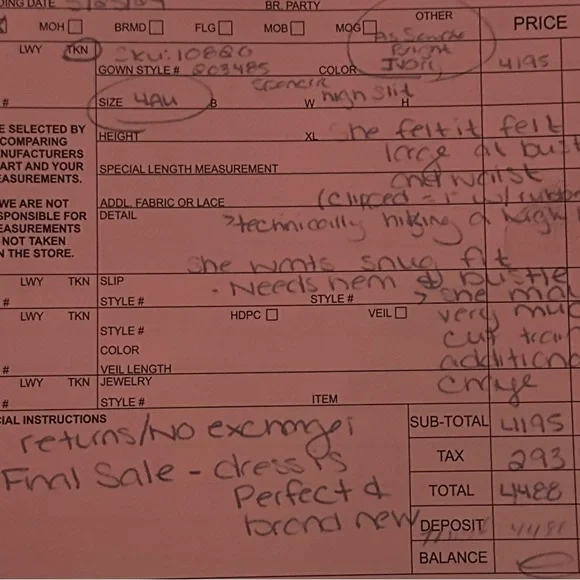 DING DATE
BR. PARTY
MOH BRMD FLG MOB MOG OTHER PRICE
As Sample
LWY TKN Sku: 10820 Bright
GOWN STYLE # 203485 COLOR Ivory 4195
Spencer
# SIZE 4AU B W high slit H
E SELECTED BY
COMPARING
NUFACTURERS
ART AND YOUR
EASUREMENTS.
HEIGHT XL She felt it felt
large at bust
SPECIAL LENGTH MEASUREMENT and waist
WE ARE NOT
SPONSIBLE FOR
EASUREMENTS
NOT TAKEN
N THE STORE.
ADDL. FABRIC OR LACE (clipped
DETAIL >technically hitting a high
She wants snug fit
LWY TKN SLIP - Needs hem & bustle
# STYLE # STYLE # > she may
LWY TKN HDPC VEIL very much
STYLE # cut train
COLOR additional
# VEIL LENGTH
LWY TKN JEWELRY charge
# STYLE # ITEM
IAL INSTRUCTIONS
returns/No exchanges
Final Sale - dress is
Perfect &
brand new
SUB-TOTAL 4195
TAX 293
TOTAL 4488
DEPOSIT 4488
BALANCE